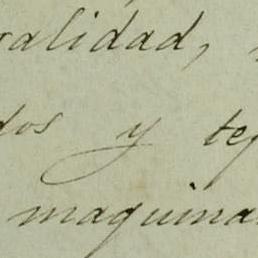 ralidad,
dos y tej
maquina